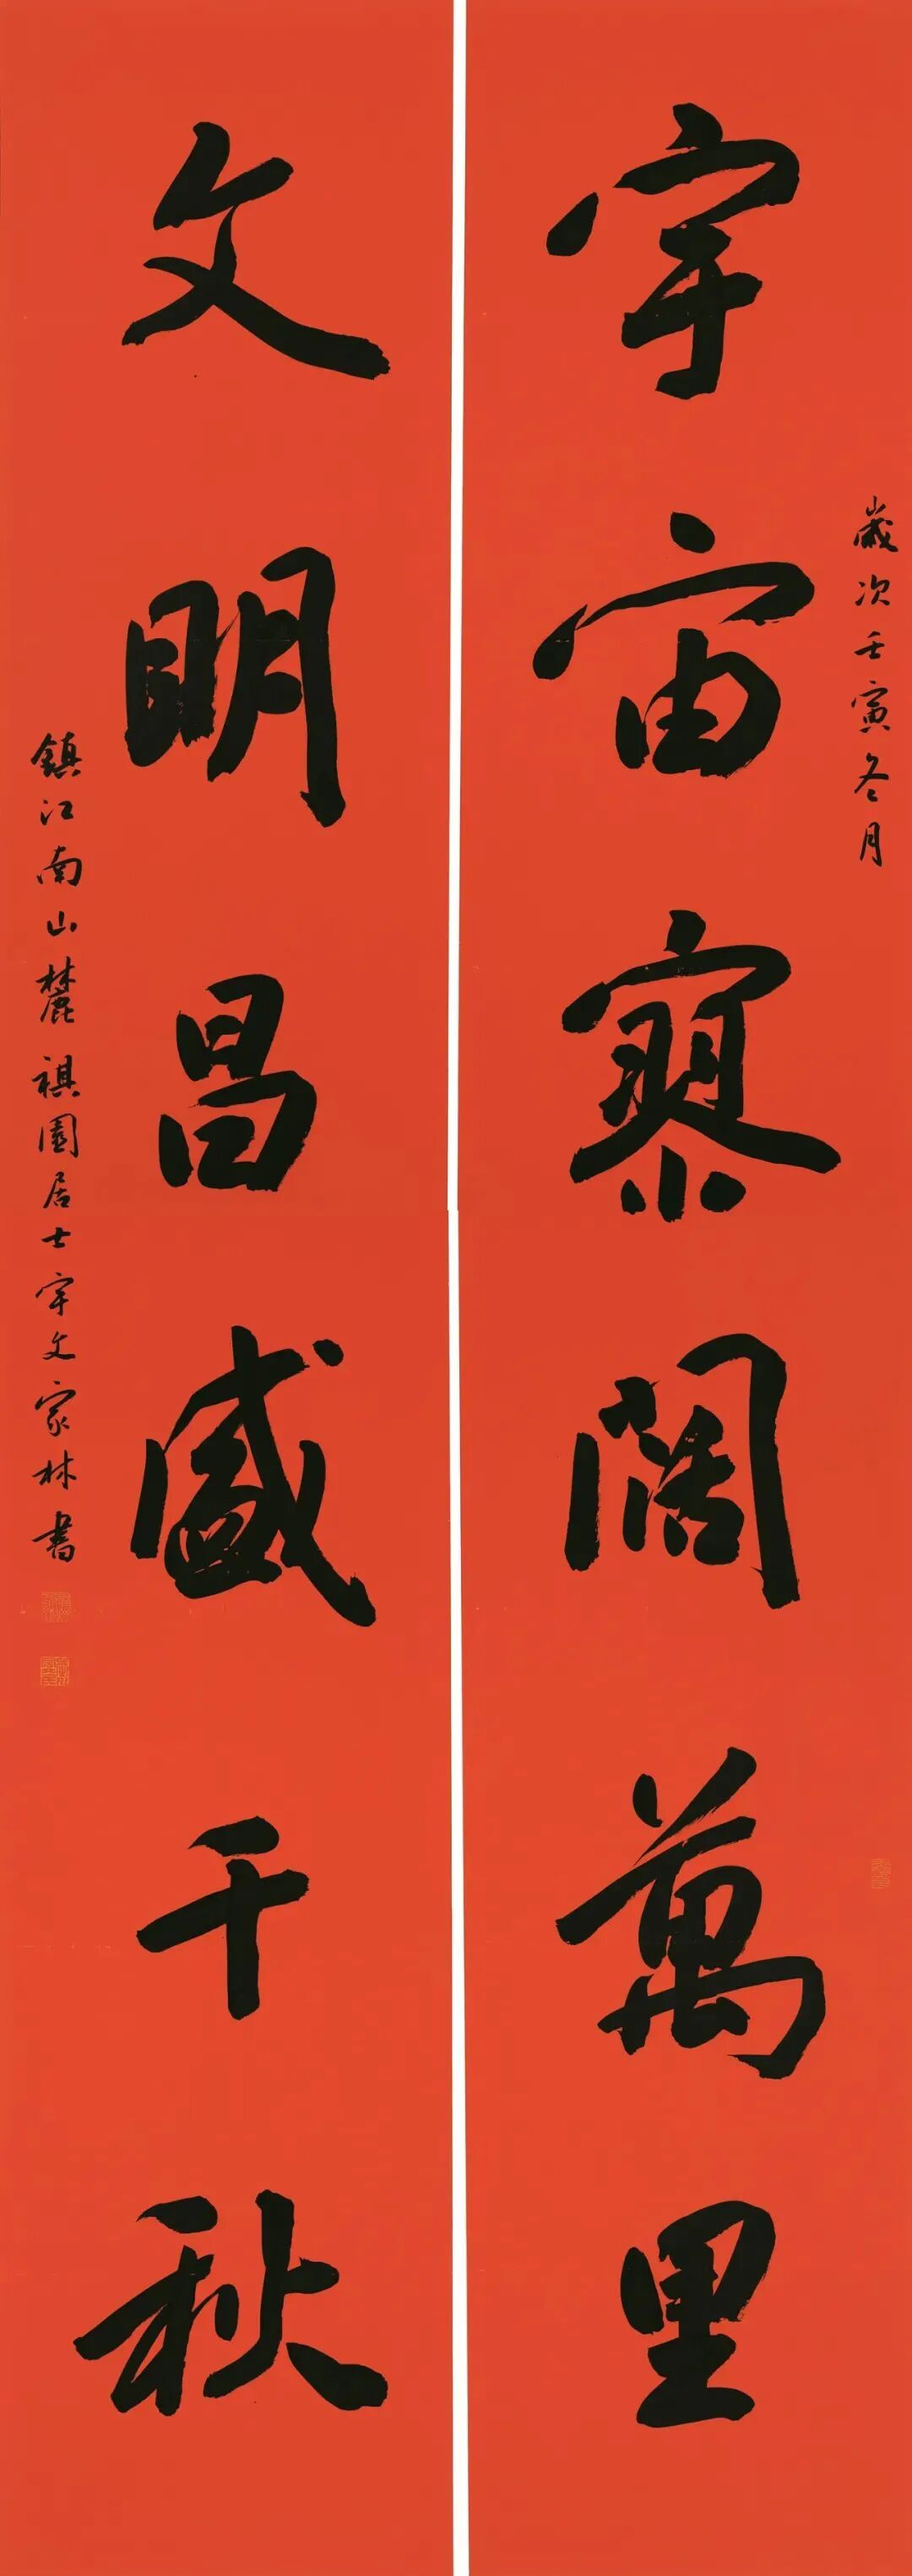 宇宙寥闊萬里
歲次壬寅冬月
文明昌盛千秋
鎮江南山麓祺園居士宇文家林書